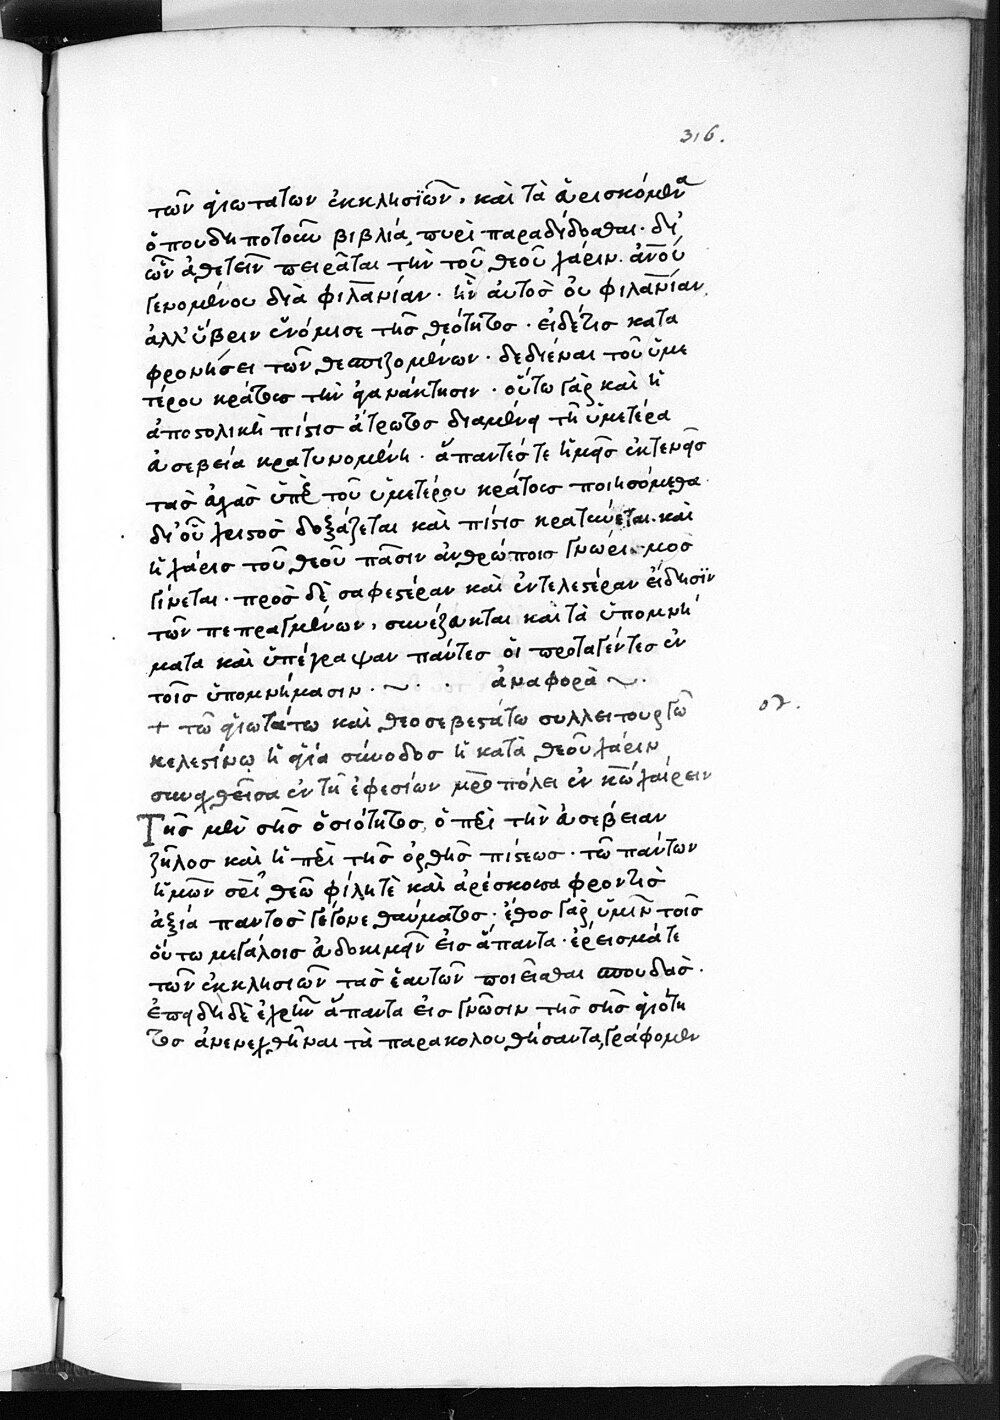 316.
τῶν ἁγιωτάτων ἐκκλησϊῶν· καὶ τὰ εὑρισκόμενα
ὁπουδηποτοῦν βιβλία, πυρὶ παραδίδοσθαι· δι'
ὧν ἀθετεῖν πειρᾶται τὴν τοῦ θεοῦ χάριν· ἀνου
γενομένου διὰ φιλανίαν· ἣν αὐτὸς οὐ φιλανίαν,
ἀλλ' ὕβριν ἐνόμισε τῆς θεότητος· εἰδέτις κατα
φρονήσει τῶν θεσπιζομένων· δεδιέναι τοῦ ὑμε
τέρου κράτους τὴν ἀγανάκτησιν· οὕτω γὰρ καὶ ἡ
ἀποστολικὴ πίστις ἄτρωτος διαμένει τῆ ὑμετέρα
εὐσεβεία κρατυνομένη· ἅπαντές τε ἡμεῖς ἐκτενεῖς
τὰς εὐχὰς ὑπὲρ τοῦ ὑμετέρου κράτους ποιησόμεθα·
δι' οὗ χριστὸς δοξάζεται καὶ πίστις κρατύνεται· καὶ
ἡ χάρις τοῦ θεοῦ πᾶσιν ἀνθρώποις γνώριμος
γίνεται· πρὸς δὲ σαφεστέραν καὶ ἐντελεστέραν εἴδησϊν
τῶν πεπραγμένων, συνέζευκται καὶ τὰ ὑπομνή
ματα καὶ ὑπέγραψαν πάντες οἱ προταγέντες ἐν
τοῖς ὑπομνήμασιν· ~ · · ἀναφορὰ ~ ·
+ τῶ ἁγιωτάτω καὶ θεοσεβεστάτω συλλειτουργῶ
κελεστίνω ἡ ἁγία σύνοδος ἡ κατὰ θεοῦ χάριν
συναχθεῖσα ἐν τῆ ἐφεσίων μρο πόλει ἐν κῶ χαίρειν
Τῆς μὲν σῆς ὁσιότητος, ὁ περὶ τὴν εὐσέβειαν
ζῆλος καὶ ἡ περὶ τῆς ὀρθῆς πίστεως· τῶ πάντων
ἡμῶν σρι θεῶ φίλητὲ καὶ ἀρέσκουσα φροντὶς
ἀξία παντὸς γέγονε θαύματος· ἔθος γὰρ ὑμῖν τοῖς
οὕτω μεγάλοις εὐδοκιμεῖν εἰς ἅπαντα· ἐρεισμάτε
τῶν ἐκκλησιῶν τὰς ἑαυτῶν ποιεῖσθαι σπουδὰς·
ἐπειδὴ δὲ ἐχρῆν ἅπαντα εἰς γνῶσιν τῆς σῆς ἁγιότη
τος ἀνενεχθῆναι τὰ παρακολουθήσαντα, γράφομεν